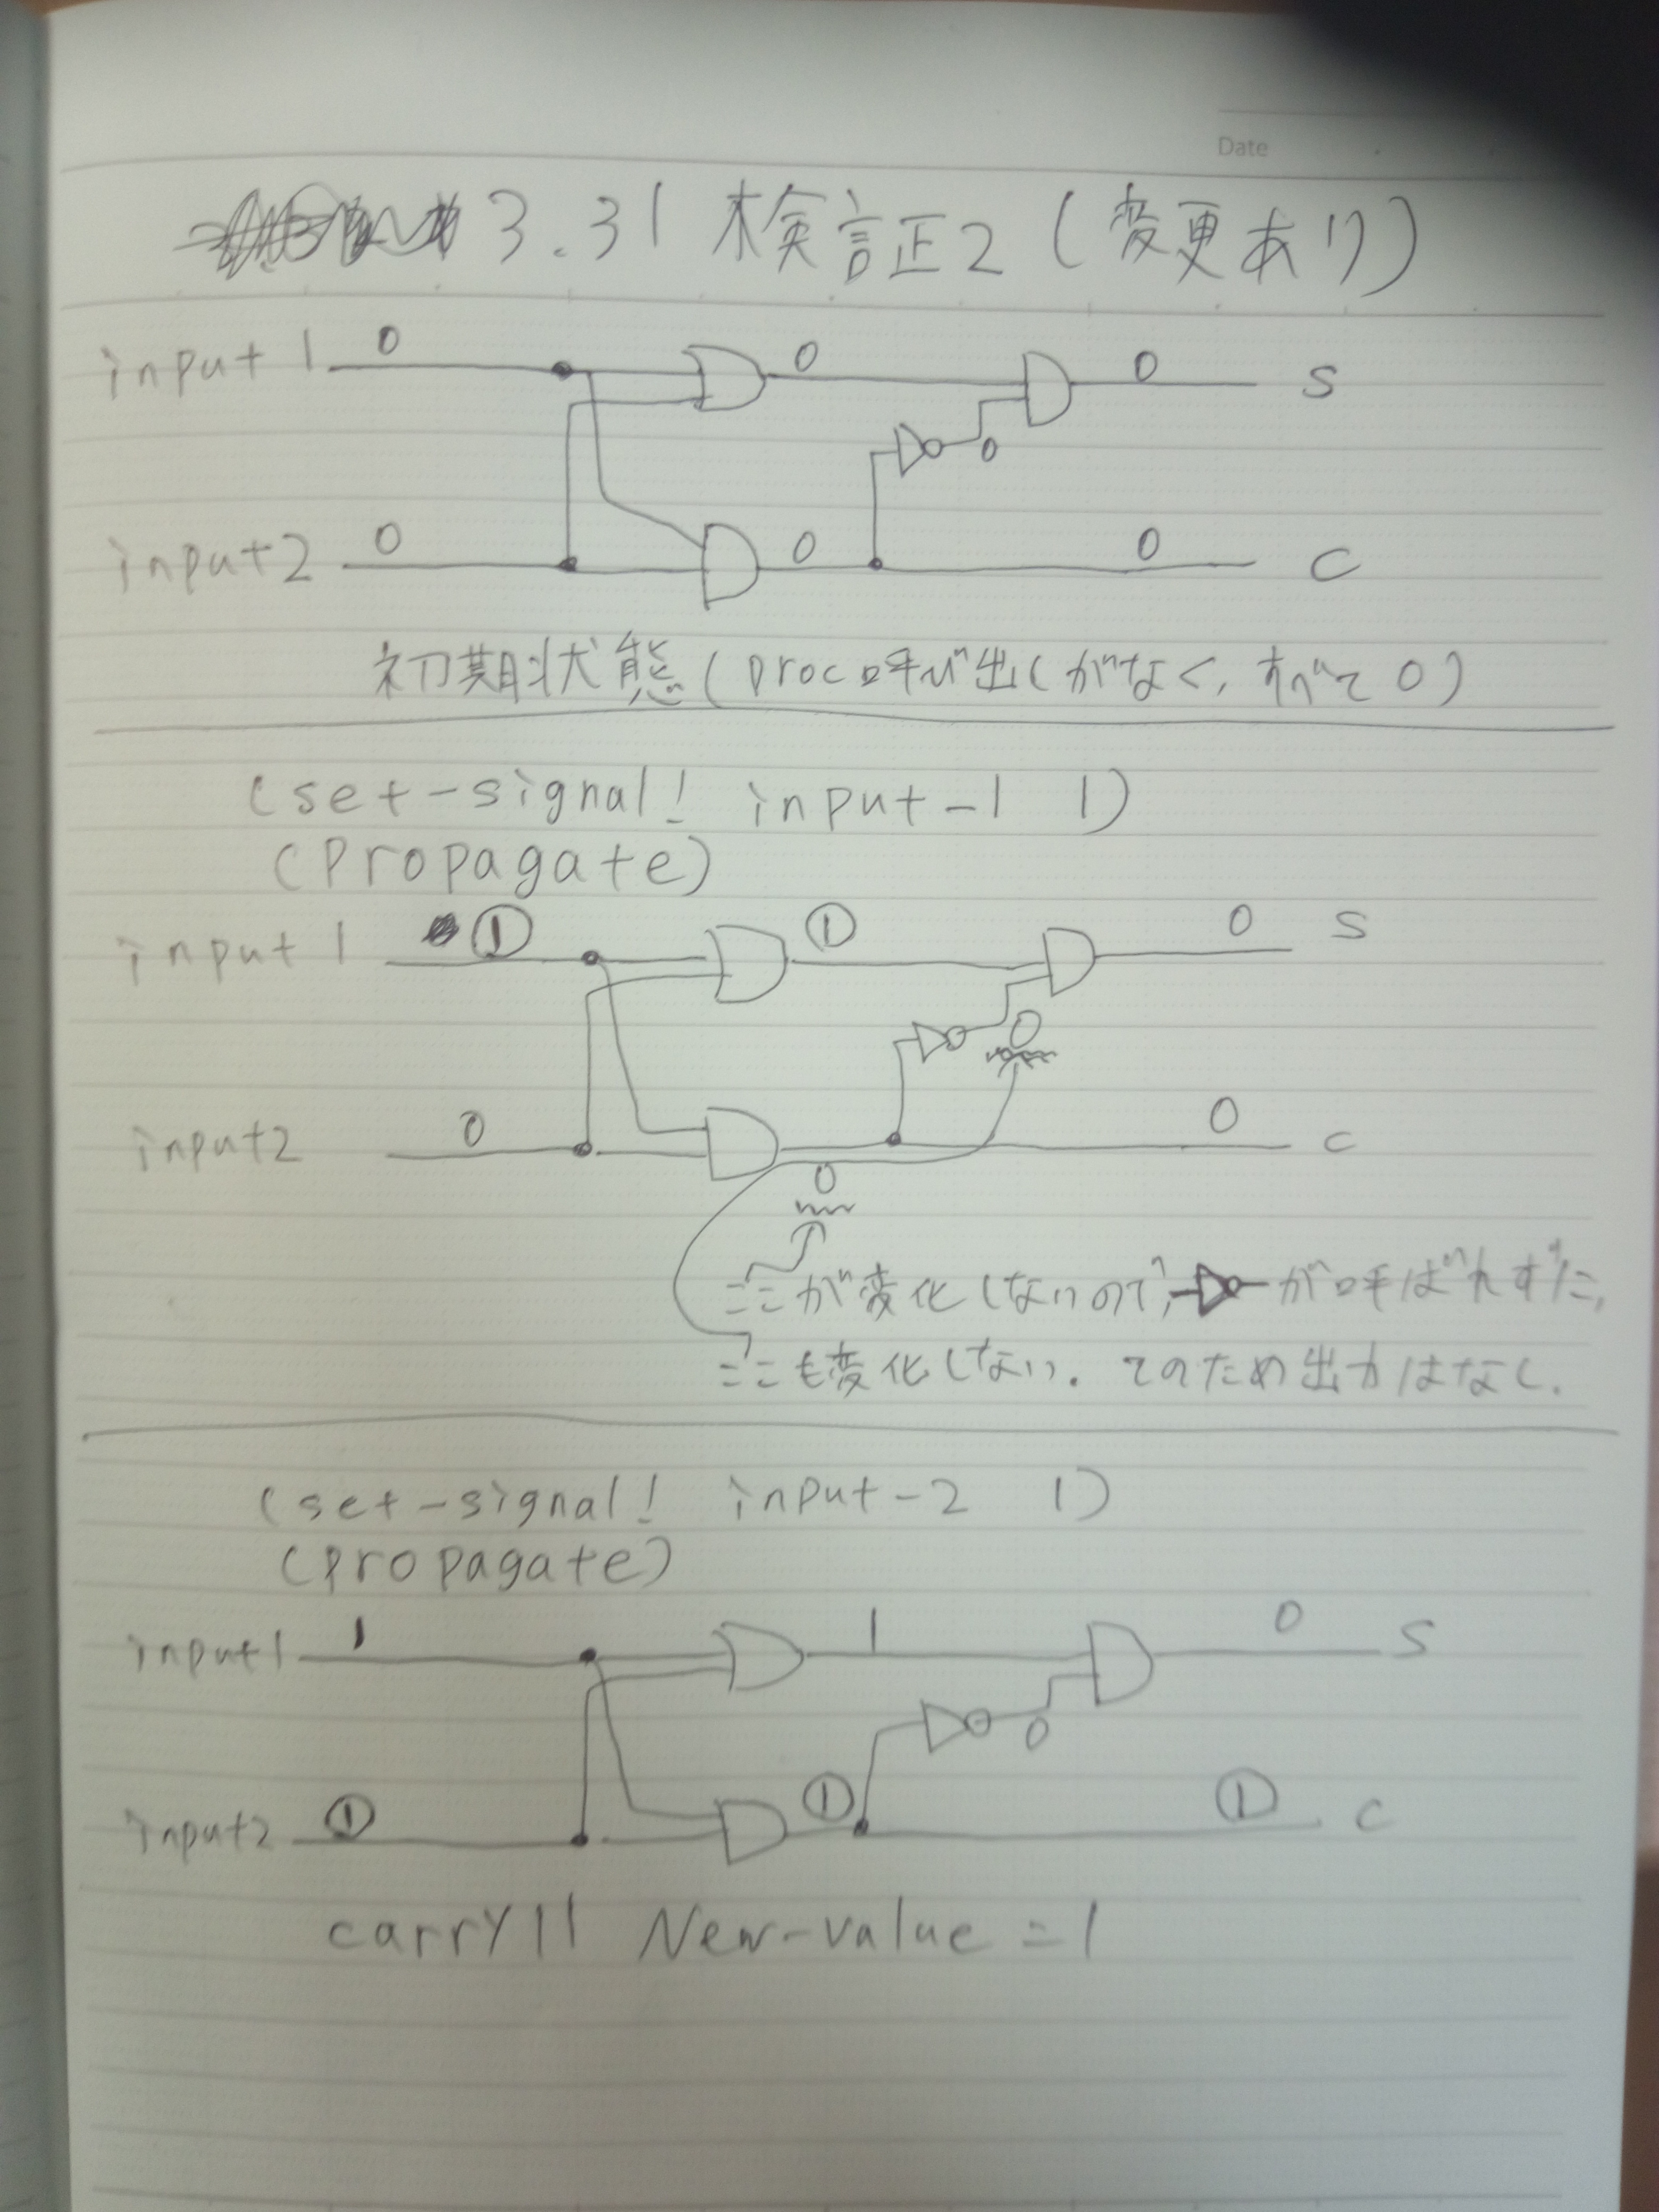 Date
3.31 検証2(変更あり)
input1 0 0 0 S
0
input2 0 0 0 C
初期状態(proc呼び出しがなく,すべて0)
(set-signal! input-1 1)
(propagate)
input1 ① ① 0 S
0
input2 0 0 C
0
ここが変化しないので, が呼ばれずに,
ここも変化しない. そのため出力はなし.
(set-signal! input-2 1)
(propagate)
input1 1 1 0 S
0
input2 ① ① ① C
carry11 New-value=1